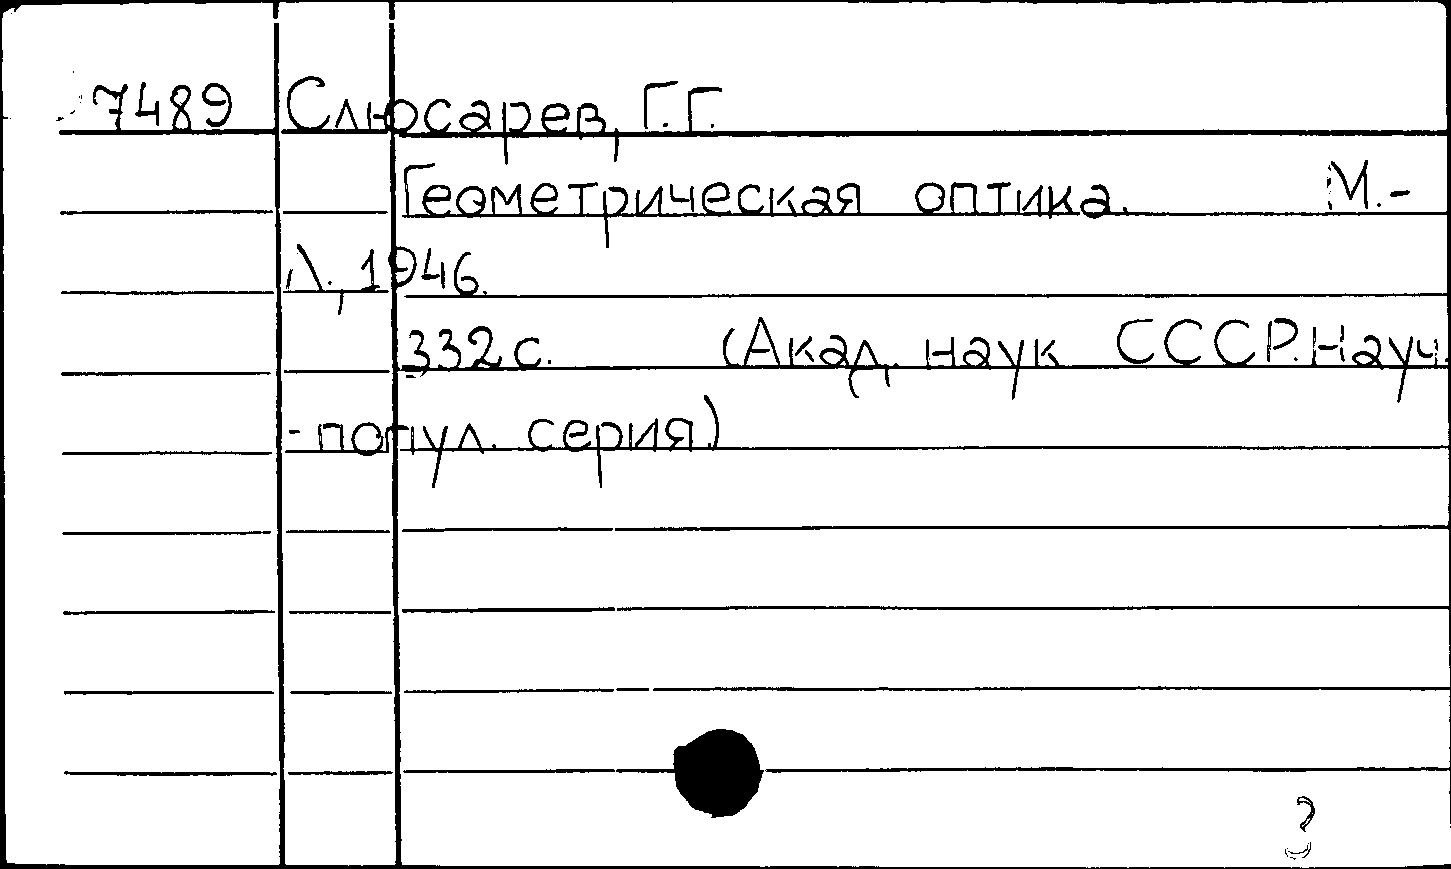 7489 Слюсарев, Г.Г.
Геометрическая оптика. М.-
Л., 1946.
332 с. (Акад. наук СССР. Науч.
-попул. серия)